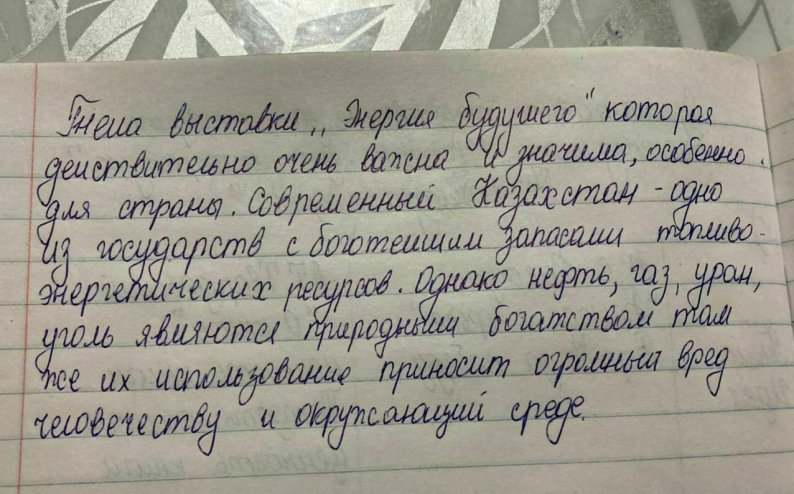 Тема выставки „Энергия будущего" которая
действительно очень важна и значима, особенно
для страны. Современный Казахстан - одно
из государств с боготейшим запасами топливо-
энергетических ресурсов. Однако нефть, газ, уран,
уголь являются природным богатством там
же их использование приносит огромный вред
человечеству и окружающий среде.